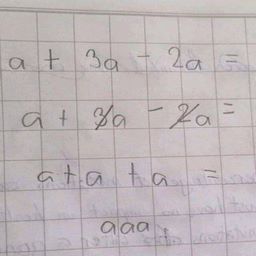 a + 3a - 2a =
a + 3a - 2a =
a + a + a =
aaa.